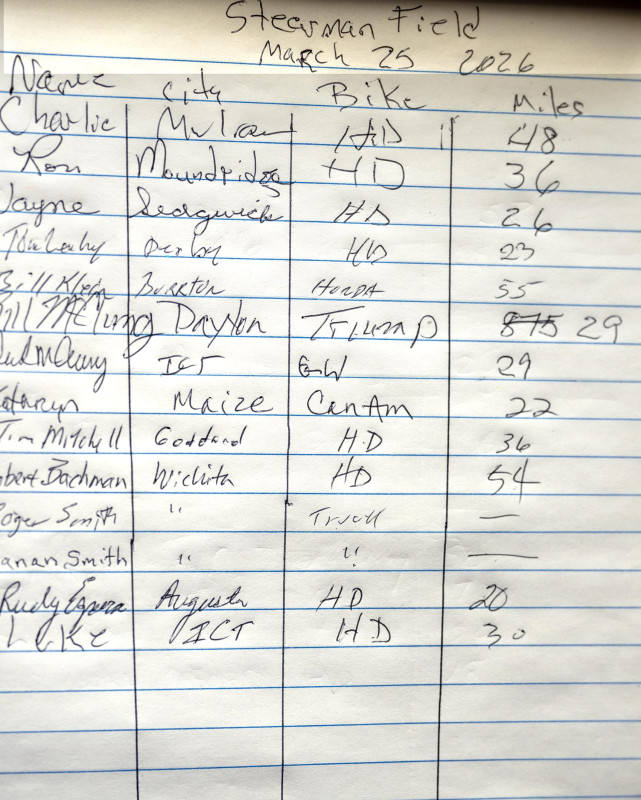 Stearman Field
March 25 2026
Name City Bike Miles
Charlie HD 48
Ron Moundridge HD 36
Jayne Sedgwick HD 26
Derby HD 23
Bill Klein Burrton Honda 55
ill McClung Dayton Triump 875 29
ICT GW 29
Maize CanAm 22
Tim Mitchell Goddard HD 36
obert Bachman Wichita HD 54
oger Smith " Truck —
anan Smith " " —
Rudy Augusta HD 20
Luke ICT HD 30